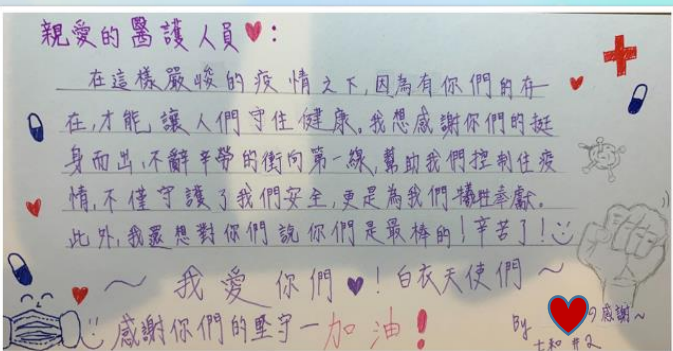 親愛的醫護人員♥:
在這樣嚴峻的疫情之下,因為有你們的存
在,才能讓人們守住健康。我想感謝你們的挺
身而出,不辭辛勞的衝向第一線,幫助我們控制住疫
情,不僅守護了我們安全,更是為我們犧牲奉獻。
此外,我還想對你們說你們是最棒的!辛苦了!
~我愛你們♥!白衣天使們~
感謝你們的堅守-加油!
By の感謝~
#2